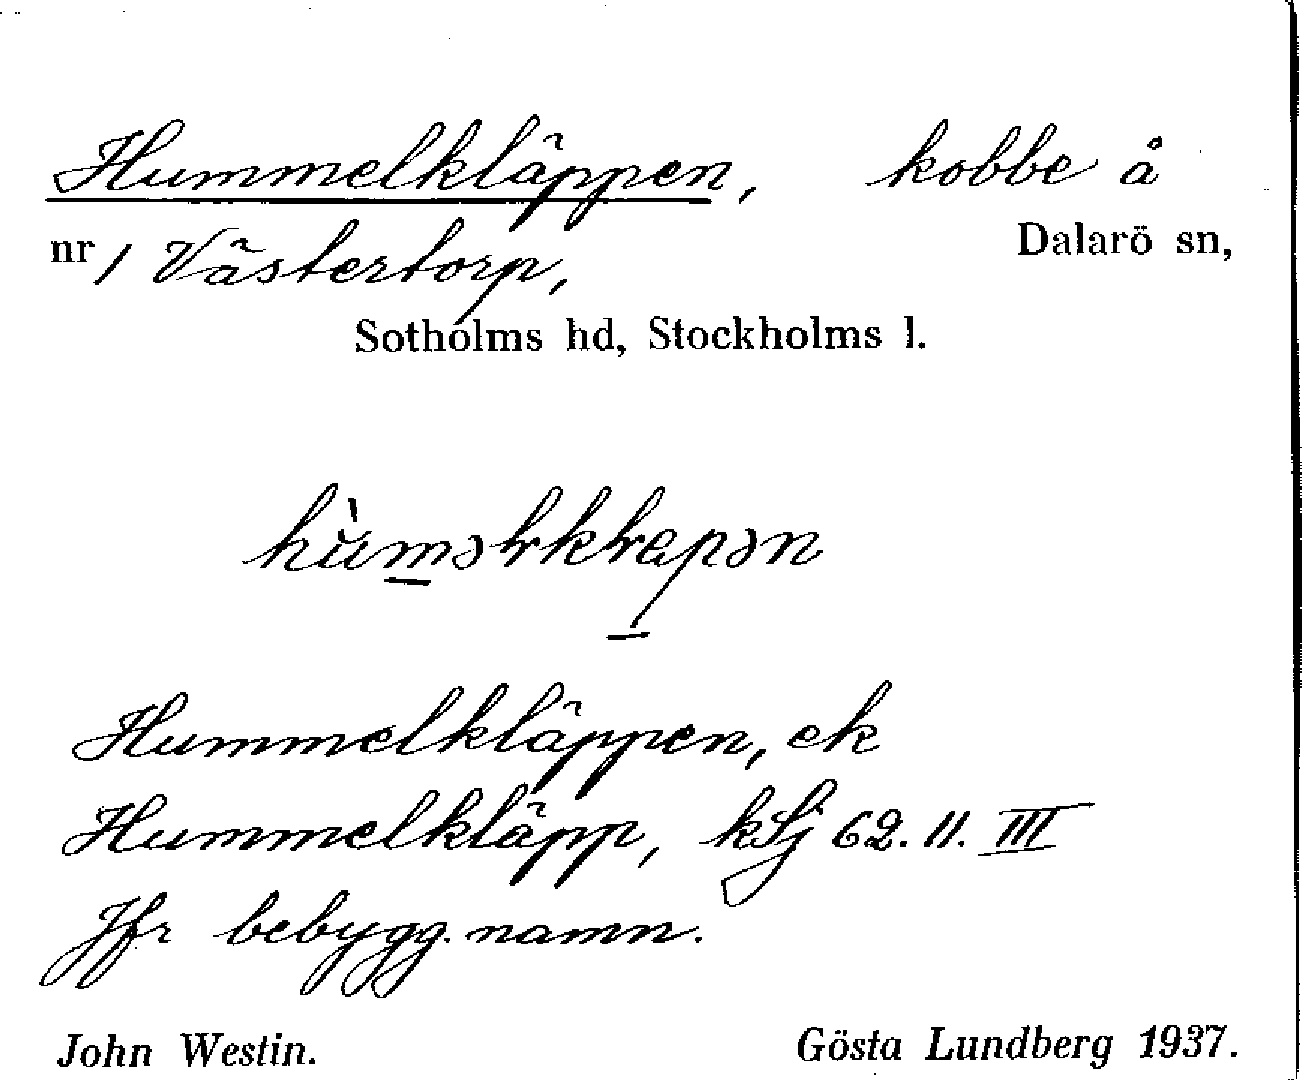 Hummelkläppen, kobbe å
nr 1 Västertorp, Dalarö sn,
Sotholms hd, Stockholms l.
Hummelkläppen, ek
Hummelkläpp, kSj 62. II. III
Jfr bebygg. namn.
John Westin. Gösta Lundberg 1937.